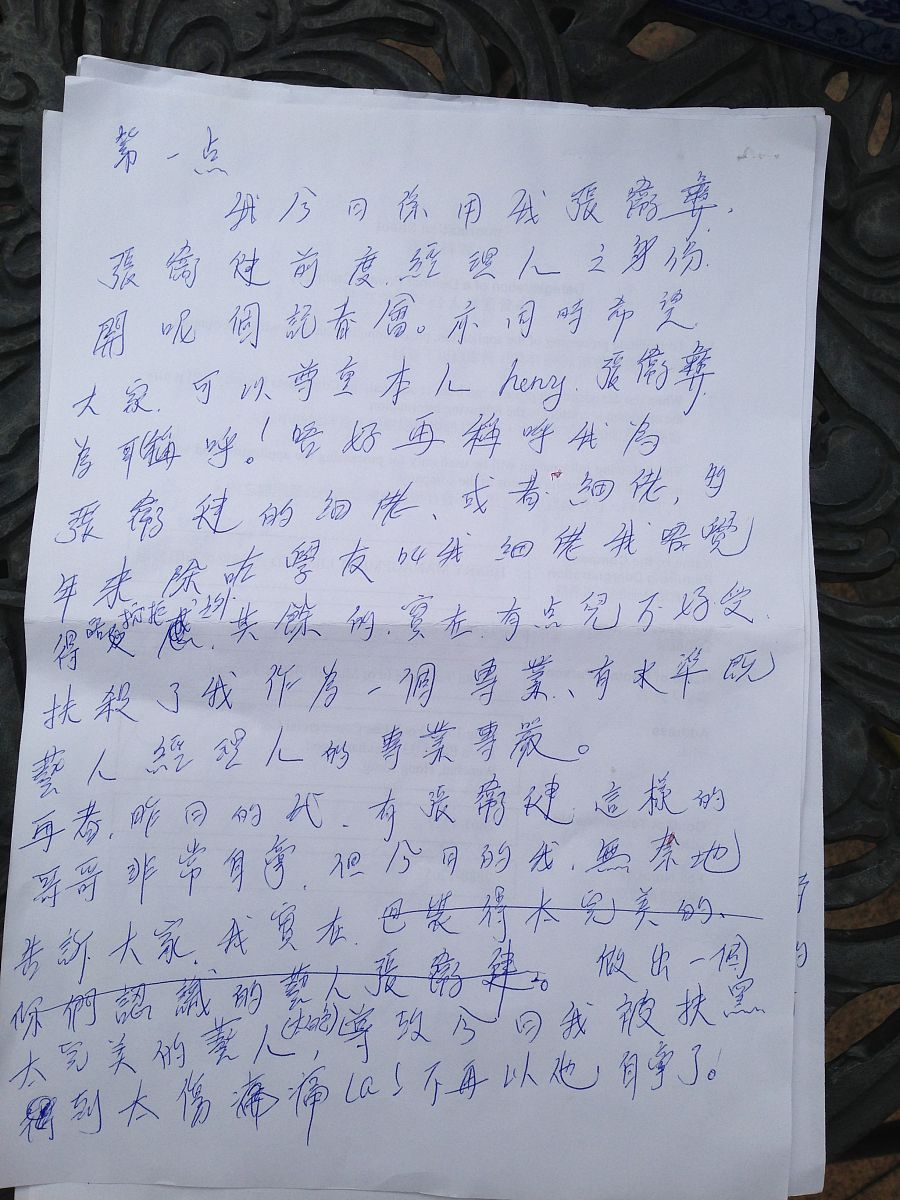 第一点
我今日係用我張衛彝,
張衛健前度經理人之身份
開呢個記者會。亦同時希望
大家,可以尊重本人henry,張衛彝
為 稱呼!唔好再稱呼我為
張衛健的細佬、或者細佬,
年來除咗學友叫我細佬我唔覺
得 抗拒 感,其餘的,實在,有点兒不好受,
扶殺了我作為一個專業、有水準既
藝人經理人的專業專嚴。
再者,昨日的我,有張衛健這樣的
哥哥非常自豪,但今日的我,無奈地
告訴大家,我實在,包裝得太完美的、
你們認識的藝人張衛健。做出一個
太完美的藝人,導致今日我被扶黑
得到太傷痛痛la!不再以他自豪了。